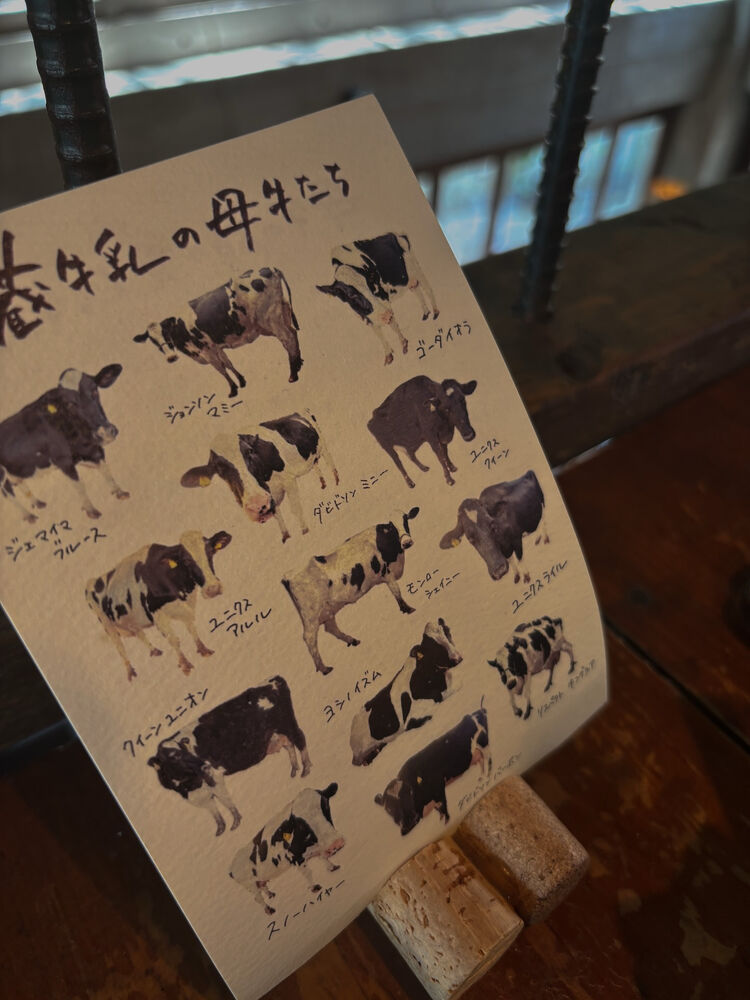 蔵牛乳の母牛たち
ゴーダイオラ
ジョンソン
マミー
ユニクス
クィーン
ダビドソン ミニー
ジェマイマ
ブルース
モンロー
シェイニー
ユニクスライル
ユニクス
アルル
ヨシノイズム
クィーンユニオン
スノーハイヤー